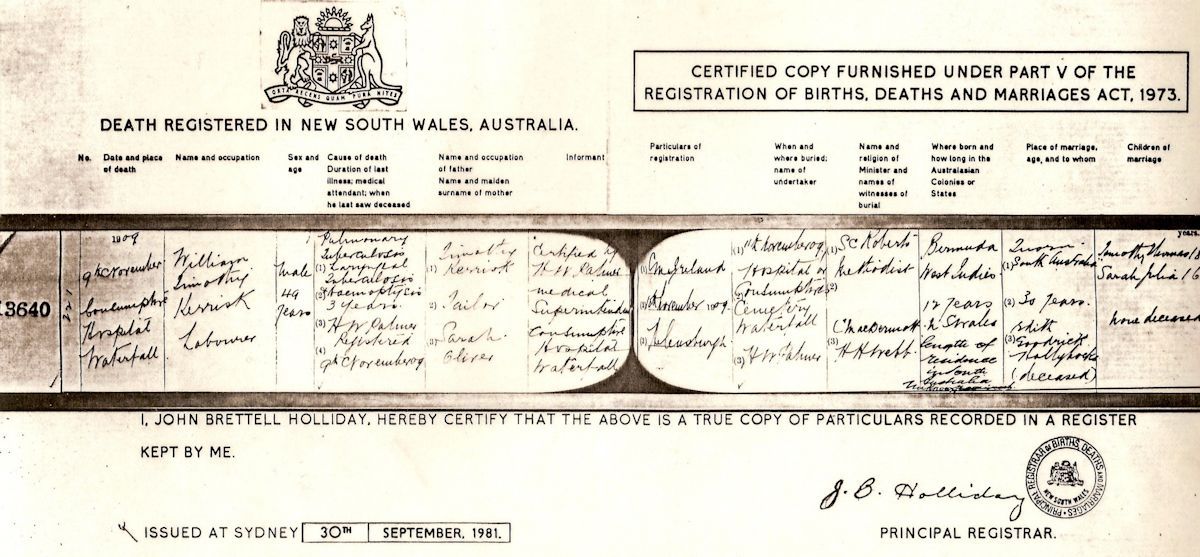 ORTA RECENS QUAM PURA NITES
DEATH REGISTERED IN NEW SOUTH WALES, AUSTRALIA.
CERTIFIED COPY FURNISHED UNDER PART V OF THE
REGISTRATION OF BIRTHS, DEATHS AND MARRIAGES ACT, 1973.
No.
Date and place
of death
Name and occupation
Sex and
age
Cause of death
Duration of last
illness; medical
attendant; when
he last saw deceased
Name and occupation
of father
Name and maiden
surname of mother
Informant
Particulars of
registration
When and
where buried;
name of
undertaker
Name and
religion of
Minister and
names of
witnesses of
burial
Where born and
how long in the
Australasian
Colonies or
States
Place of marriage,
age, and to whom
Children of
marriage
13640
1909
9th November
Consumptive
Hospital
Waterfall
William
Timothy
Kerrisk
Labourer
male
49
years
Pulmonary
Tuberculosis
(1) Laryngeal
Tuberculosis
(2) Haemoptysis
3 years
(3) H W Palmer
Registered
(4) 9th November 09
Timothy
(1) Kerrisk
(2) Tailor
(3) Sarah
Oliver
Certified by
H W Palmer
medical
Superintendent
Consumptive
Hospital
Waterfall
(1)
(2) November 1909
(3) Helensburgh
(1) November 09
Hospital for
(2) Consumptives
Cemetery
Waterfall
(3) H W Palmer
(1) S C Roberts
Methodist
(2)
C MacDermott
(3) H H Webb
Bermuda
West Indies
12 years
N S Wales
length of
residence
in South
Australia
(1) South Australia
(2) 30 years
(3) Goodrick
Hollyhocke
(deceased)
years.
Timothy Thomas 18
Sarah Julia 16
none deceased
I, JOHN BRETTELL HOLLIDAY, HEREBY CERTIFY THAT THE ABOVE IS A TRUE COPY OF PARTICULARS RECORDED IN A REGISTER
KEPT BY ME.
J. B. Holliday
PRINCIPAL REGISTRAR OF BIRTHS, DEATHS AND MARRIAGES
NEW SOUTH WALES
ISSUED AT SYDNEY 30TH SEPTEMBER, 1981.
PRINCIPAL REGISTRAR.